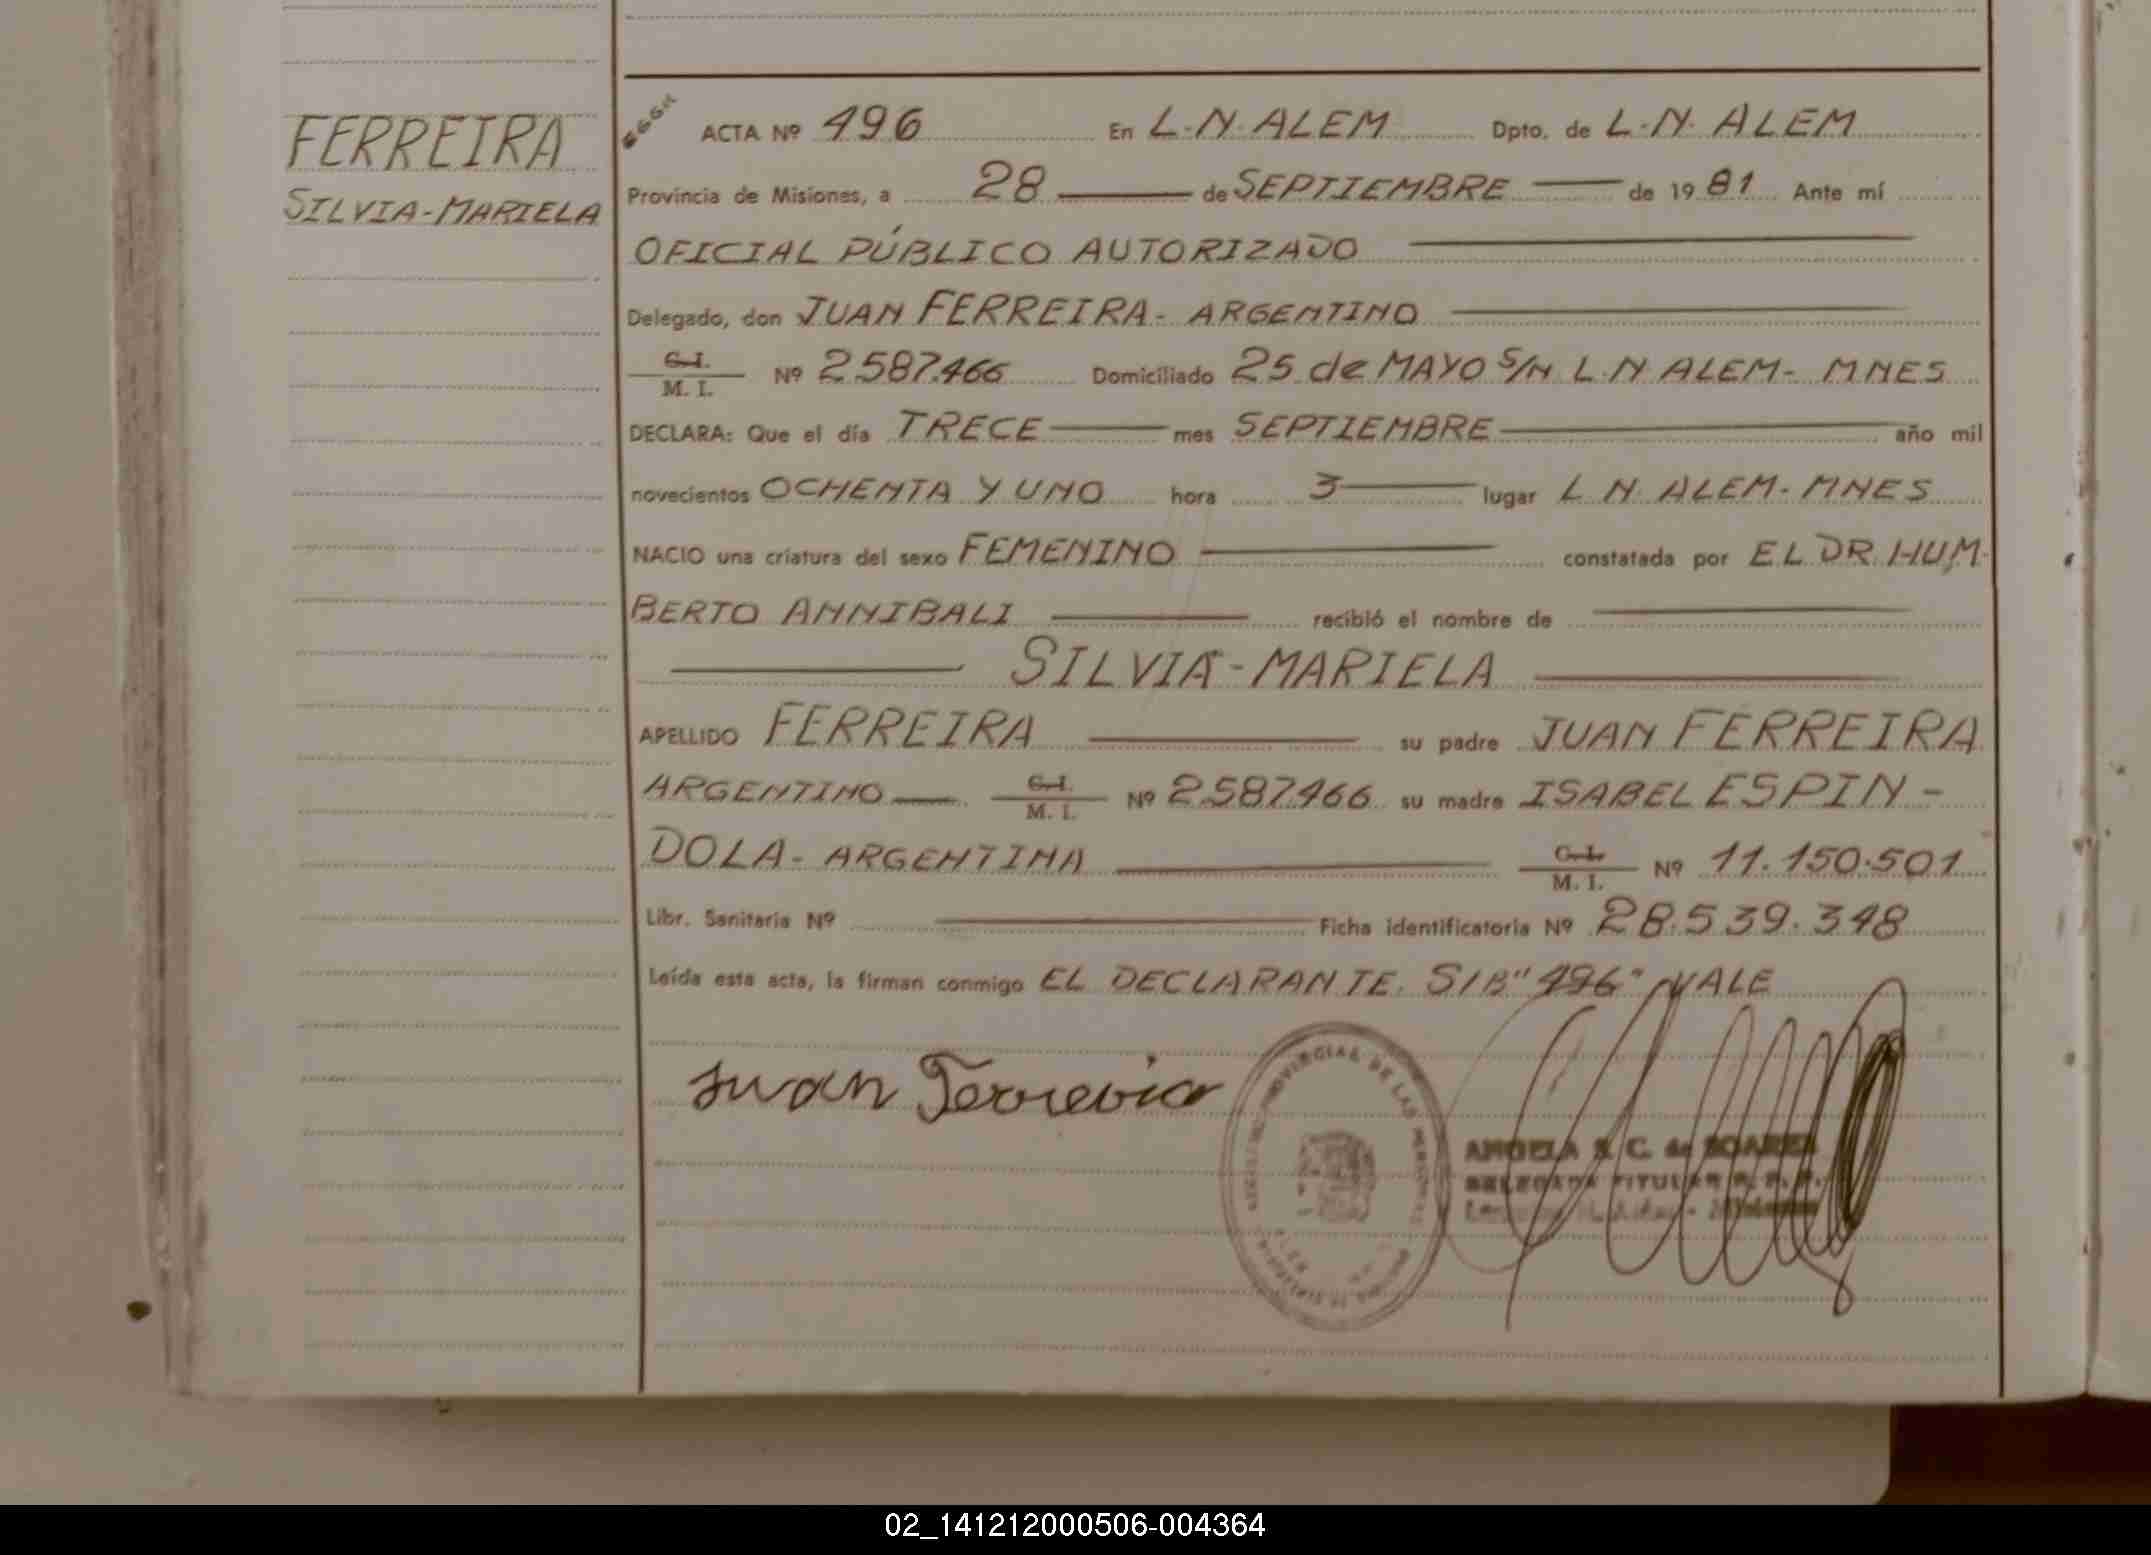 FERREIRA
SILVIA-MARIELA
ACTA Nº 496 En L.N. ALEM Dpto. de L.N. ALEM
Provincia de Misiones, a 28 de SEPTIEMBRE de 1981 Ante mí
OFICIAL PÚBLICO AUTORIZADO
Delegado, don JUAN FERREIRA- ARGENTINO
C.I.
M. I. Nº 2.587.466 Domiciliado 25 de MAYO S/N L N ALEM- MNES
DECLARA: Que el día TRECE mes SEPTIEMBRE año mil
novecientos OCHENTA Y UNO hora 3 lugar L N. ALEM- MNES
NACIO una criatura del sexo FEMENINO constatada por EL DR. HUM-
BERTO ANNIBALI recibió el nombre de
SILVIA-MARIELA
APELLIDO FERREIRA su padre JUAN FERREIRA
ARGENTINO C.I. M. I. Nº 2.587.466 su madre ISABEL ESPIN-
DOLA- ARGENTINA C.I. M. I. Nº 11.150.501
Libr. Sanitaria Nº Ficha identificatoria Nº 28.539.348
Leída esta acta, la firman conmigo EL DECLARANTE. S/B "496" VALE
Juan Ferreira
PROVINCIAL DE LAS PERSONAS
ANGELA S. C. de SOARES
DELEGADA TITULAR R. P. P.
02_141212000506-004364